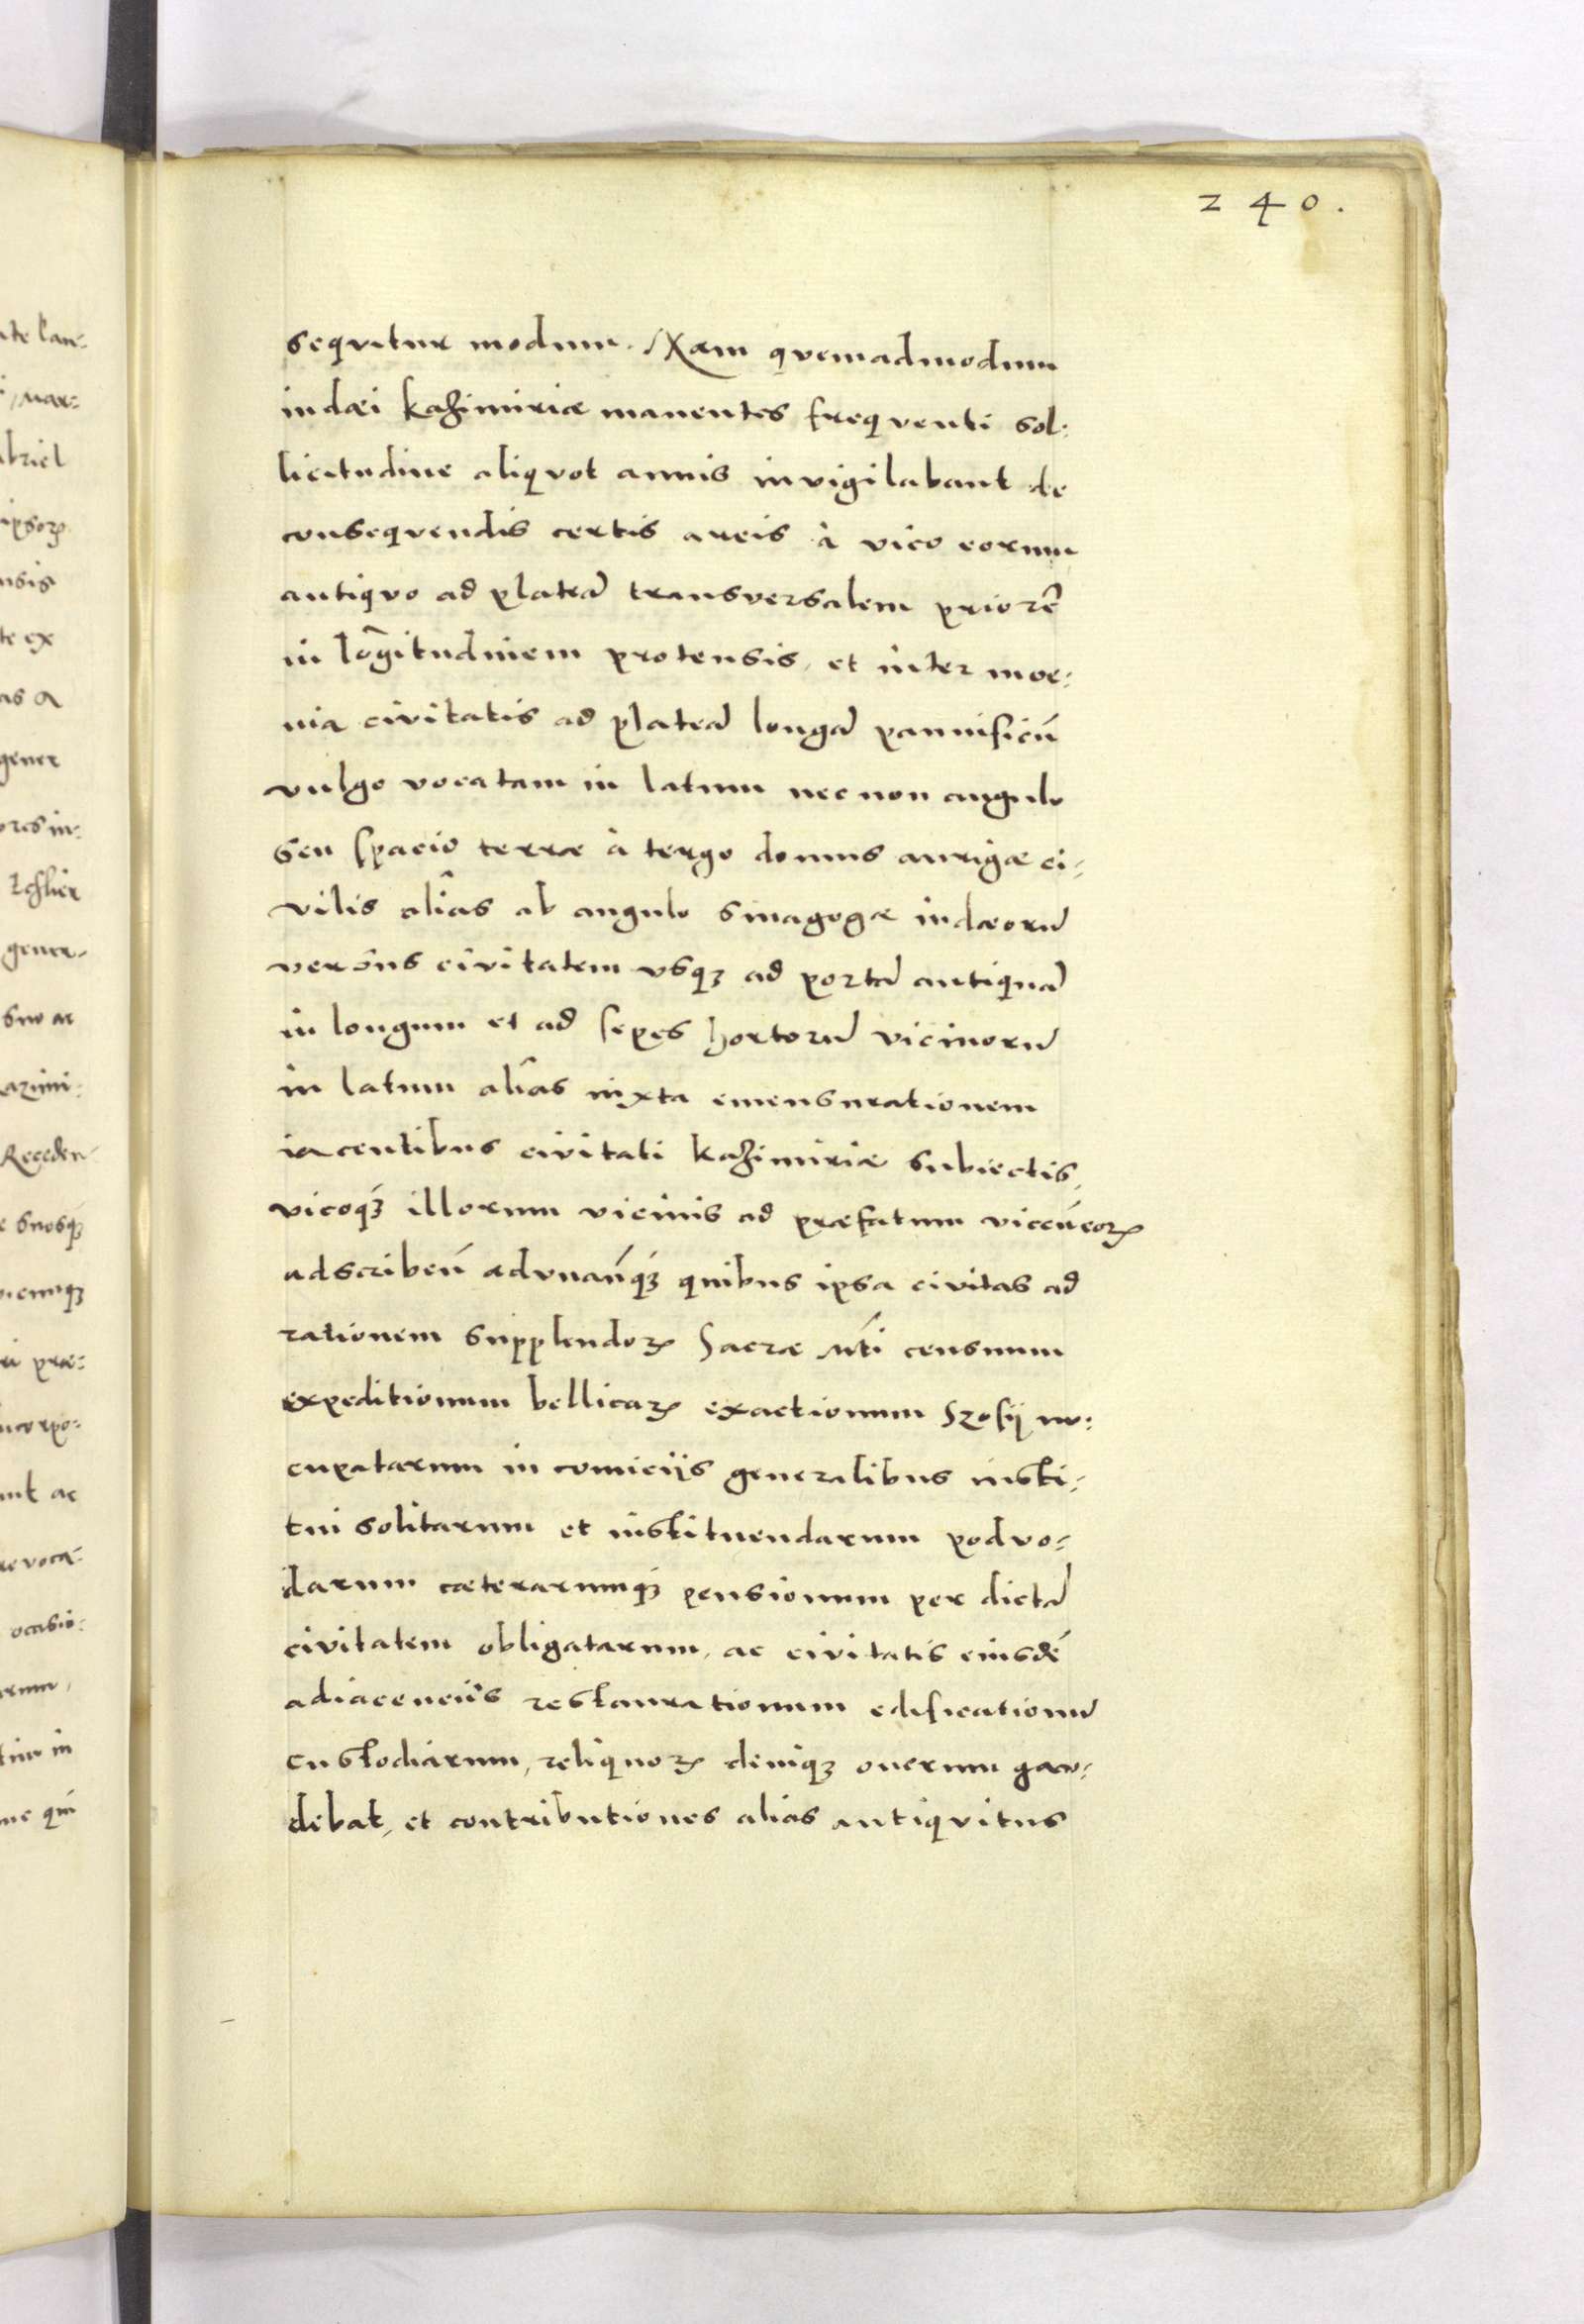 240.
sequitur modum. Nam quemadmodum
iudæi Kazimiriæ manentes frequenti sol:
licitudine aliquot annis invigilabant de
consequendis certis areis à vico eorum
antiquo ad plateã transversalem priorẽ
in lõgitudinem protensis, et inter moe:
nia civitatis ad plateã longã pannificũ
vulgo vocatam in latum nec non angulo
seu spacio terræ à tergo domus aurigæ ci:
vilis aliãs ab angulo sinagogæ iudæorũ
versus civitatem usq₃ ad portã antiquã
in longum et ad sepes hortorũ vicinorũ
in latum aliãs iuxta emensurationem
iacentibus civitati Kazimiriæ subiectis,
vicoq₃ illorum vicinis ad præfatum vicũ eoꝝ
adscribeñ adunañq₃ quibus ipsa civitas ad
rationem supplendoꝝ Sacræ Mti censuum
expeditionum bellicaꝝ exactionum Szosij nu:
cupatarum in comicijs generalibus insti:
tui solitarum et instituendarum podvo:
darum cæterarumq₃ pensionum per dictã
civitatem obligatarum, ac civitatis eiusdẽ
adiacencijs restaurationum edificationũ
custodiarum, reliquoꝝ deniq₃ onerum gau:
debat, et contributiones alias antiquitus
ate lan:
, Mar:
abriel
ipsoꝝ
nsis
te ex
as a
gener
ores in:
gener-
suo ac
azimi:
Receden-
suosq₃
ri præ:
ncorpo:
unt ac
revocã:
ocasio:
rum,